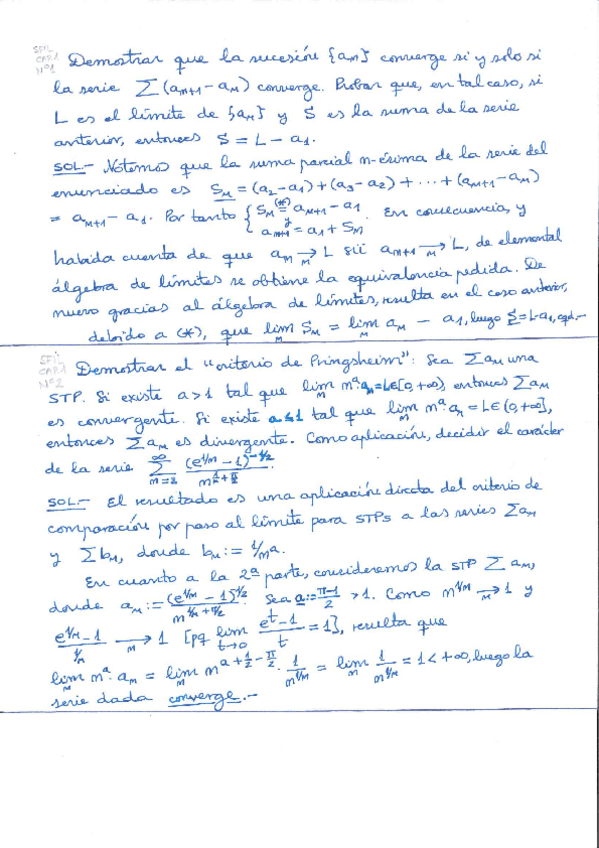 SFIL CAR1 Nº1 Demostrar que la sucesión {aₙ} converge si y solo si
la serie ∑(aₙ₊₁-aₙ) converge. Probar que, en tal caso, si
L es el límite de {aₙ} y S es la suma de la serie
anterior, entonces S = L - a₁.
SOL.- Notemos que la suma parcial n-ésima de la serie del
enunciado es Sₙ = (a₂-a₁)+(a₃-a₂)+···+(aₙ₊₁-aₙ)
= aₙ₊₁-a₁. Por tanto { Sₙ (*)= aₙ₊₁-a₁ y aₙ₊₁ = a₁+Sₙ. En consecuencia, y
habida cuenta de que aₙ →ₙ L sii aₙ₊₁ →ₙ L, de elemental
álgebra de límites se obtiene la equivalencia pedida. De
nuevo gracias al álgebra de límites, resulta en el caso anterior,
debido a (*), que limₙ Sₙ = limₙ aₙ - a₁, luego S=L-a₁, cqd.-
SFIL CAR1 Nº2 Demostrar el "criterio de Pringsheim": Sea ∑aₙ una
STP. Si existe a>1 tal que limₙ nᵃ·aₙ=L∈[0,+∞), entonces ∑aₙ
es convergente. Si existe a≤1 tal que limₙ nᵃ·aₙ=L∈(0,+∞],
entonces ∑aₙ es divergente. Como aplicación, decidir el carácter
de la serie ∑_{n=2}^{∞} (e^{1/n}-1)^{-1/2} / n^{1/n+π/2}.
SOL.- El resultado es una aplicación directa del criterio de
comparación por paso al límite para STPs a las series ∑aₙ
y ∑bₙ, donde bₙ := 1/nᵃ.
En cuanto a la 2ª parte, consideremos la STP ∑aₙ,
donde aₙ := (e^{1/n}-1)^{-1/2} / n^{1/n+π/2}. Sea a := (π-1)/2 > 1. Como n^{1/n} →ₙ 1 y
(e^{1/n}-1)/(1/n) →ₙ 1 [pq lim_{t→0} (e^t-1)/t = 1], resulta que
limₙ nᵃ·aₙ = limₙ n^{a+1/2-π/2} · 1/n^{1/n} = limₙ 1/n^{1/n} = 1 < +∞, luego la
serie dada converge.-